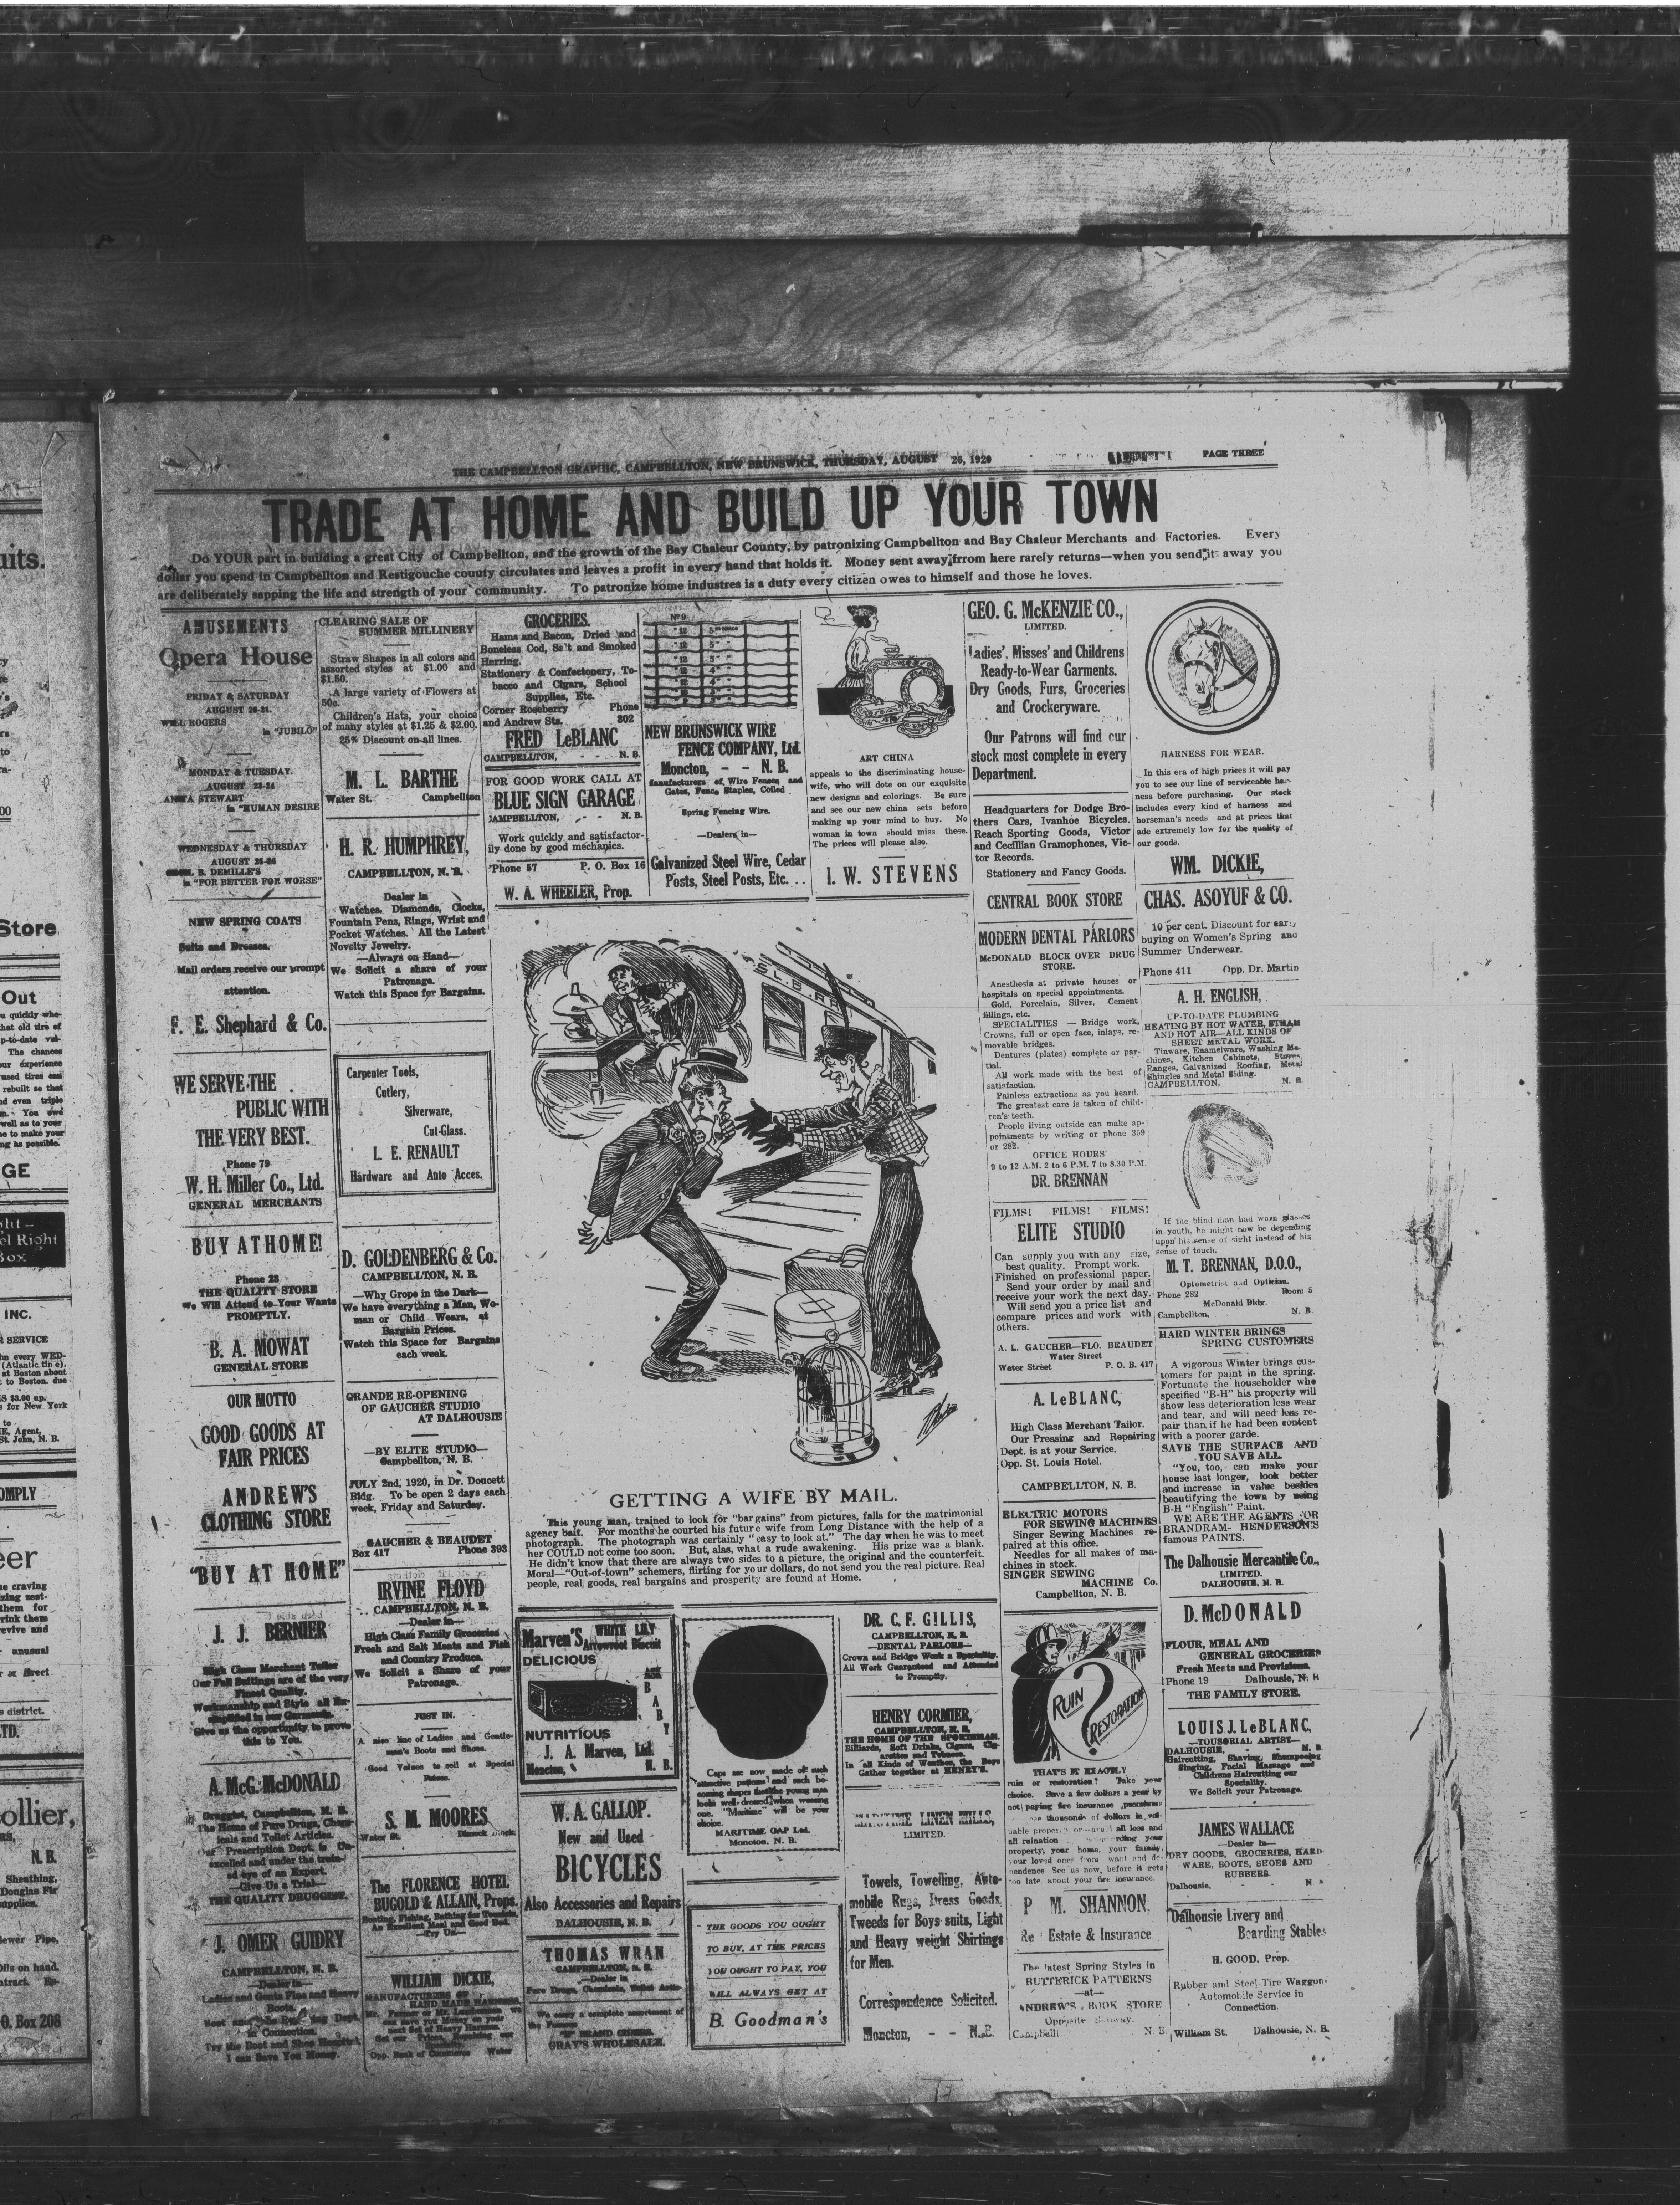 THE CAMPBELLTON GRAPHIC, CAMPBELLTON, NEW BRUNSWICK, THURSDAY, AUGUST 26, 1920
PAGE THREE
TRADE AT HOME AND BUILD UP YOUR TOWN
Do YOUR part in building a great City of Campbellton, and the growth of the Bay Chaleur County, by patronizing Campbellton and Bay Chaleur Merchants and Factories. Every
dollar you spend in Campbellton and Restigouche county circulates and leaves a profit in every hand that holds it. Money sent away frrom here rarely returns—when you send it away you
are deliberately sapping the life and strength of your community. To patronize home industres is a duty every citizen owes to himself and those he loves.
AMUSEMENTS
Opera House
FRIDAY & SATURDAY
AUGUST 20-21.
WILL ROGERS
in "JUBILO"
MONDAY & TUESDAY.
AUGUST 23-24
ANITA STEWART
in "HUMAN DESIRE
WEDNESDAY & THURSDAY
AUGUST 25-26
B. DEMILLE'S
in "FOR BETTER FOR WORSE"
NEW SPRING COATS
Suits and Dresses.
Mail orders receive our prompt
attention.
F. E. Shephard & Co.
WE SERVE THE
PUBLIC WITH
THE VERY BEST.
Phone 79
W. H. Miller Co., Ltd.
GENERAL MERCHANTS
BUY AT HOME!
Phone 23
THE QUALITY STORE
We Will Attend to Your Wants
PROMPTLY.
B. A. MOWAT
GENERAL STORE
OUR MOTTO
GOOD GOODS AT
FAIR PRICES
ANDREW'S
CLOTHING STORE
"BUY AT HOME"
J. J. BERNIER
High Class Merchant Tailor
Our Fall Suitings are of the very
Finest Quality.
Workmanship and Style all
in our Garments.
Give us the opportunity to prove
this to You.
A. McG. McDONALD
Druggist, Campbellton, N. B.
The Home of Pure Drugs, Chem-
icals and Toilet Articles.
Our Prescription Dept. is Un-
excelled and under the train-
ed eye of an Expert.
—Give Us a Trial—
THE QUALITY DRUGGIST.
J. OMER GUIDRY
CAMPBELLTON, N. B.
—Dealer in—
Ladies and Gents Fine and Heavy
Boots.
Boot and Dept.
in Connection.
Try the Boot and Shoe Hospital,
I can Save You Money.
CLEARING SALE OF
SUMMER MILLINERY
Straw Shapes in all colors and
assorted styles at $1.00 and
$1.50.
A large variety of Flowers at
50c.
Children's Hats, your choice
of many styles at $1.25 & $2.00.
25% Discount on all lines.
M. L. BARTHE
Water St. Campbellton
H. R. HUMPHREY,
CAMPBELLTON, N. B.
Dealer in
Watches, Diamonds, Clocks,
Fountain Pens, Rings, Wrist and
Pocket Watches. All the Latest
Novelty Jewelry.
—Always on Hand—
We Solicit a share of your
Patronage.
Watch this Space for Bargains.
Carpenter Tools,
Cutlery,
Silverware,
Cut-Glass.
L. E. RENAULT
Hardware and Auto Acces.
D. GOLDENBERG & Co.
CAMPBELLTON, N. B.
—Why Grope in the Dark—
We have everything a Man, Wo-
man or Child Wears, at
Bargain Prices.
Watch this Space for Bargains
each week.
GRANDE RE-OPENING
OF GAUCHER STUDIO
AT DALHOUSIE
—BY ELITE STUDIO—
Campbellton, N. B.
JULY 2nd, 1920, in Dr. Doucett
Bldg. To be open 2 days each
week, Friday and Saturday.
GAUCHER & BEAUDET
Box 417 Phone 393
IRVINE FLOYD
CAMPBELLTON, N. B.
—Dealer in—
High Class Family Groceries
Fresh and Salt Meats and Fish
and Country Produce.
We Solicit a Share of your
Patronage.
JUST IN.
A nice line of Ladies and Gentle-
men's Boots and Shoes.
Good Values to sell at Special
Prices.
S. M. MOORES
Water St.
The FLORENCE HOTEL
BUGOLD & ALLAIN, Props.
Boating, Fishing, Bathing for Tourists.
An Excellent Meal and Good Bed.
—Try Us—
WILLIAM DICKIE,
MANUFACTURERS OF
HAND MADE HARNESS.
Mr. Farmer or Mr. Lumberman we
can save you Money on your
next Set of Heavy Harness.
Get our Prices. Repairing our
Specialty.
Opp. Bank of Commerce Water
GROCERIES.
Hams and Bacon, Dried and
Boneless Cod, Salt and Smoked
Herring.
Stationery & Confectonery, To-
bacco and Cigars, School
Supplies, Etc.
Corner Roseberry Phone
and Andrew Sts. 302
FRED LeBLANC
CAMPBELLTON, - - - N. B.
FOR GOOD WORK CALL AT
BLUE SIGN GARAGE
CAMPBELLTON, - - N. B.
Work quickly and satisfactor-
ily done by good mechanics.
Phone 57 P. O. Box 16
W. A. WHEELER, Prop.
No 9
NEW BRUNSWICK WIRE
FENCE COMPANY, Ltd.
Moncton, - - N. B.
Manufacturers of Wire Fences and
Gates, Fence Staples, Coiled
Spring Fencing Wire.
—Dealers in—
Galvanized Steel Wire, Cedar
Posts, Steel Posts, Etc. . .
ART CHINA
appeals to the discriminating house-
wife, who will dote on our exquisite
new designs and colorings. Be sure
and see our new china sets before
making up your mind to buy. No
woman in town should miss these.
The prices will please also.
I. W. STEVENS
GETTING A WIFE BY MAIL.
This young man, trained to look for "bargains" from pictures, falls for the matrimonial
agency bait. For months he courted his future wife from Long Distance with the help of a
photograph. The photograph was certainly "easy to look at." The day when he was to meet
her COULD not come too soon. But, alas, what a rude awakening. His prize was a blank.
He didn't know that there are always two sides to a picture, the original and the counterfeit.
Moral—"Out-of-town" schemers, flirting for your dollars, do not send you the real picture. Real
people, real goods, real bargains and prosperity are found at Home.
Marven'S WHITE LILY
Arrowroot Biscuit
DELICIOUS
ASK
BABY
NUTRITIOUS
J. A. Marven, Ltd.
Moncton, N. B.
W. A. GALLOP.
New and Used
BICYCLES
Also Accessories and Repairs
DALHOUSIE, N. B.
THOMAS WRAN
CAMPBELLTON, N. B.
—Dealer in
Pure Drugs, Chemicals, Toilet Artic-
We carry a complete assortment of
the Famous
BRAND CIGARS.
GRAY'S WHOLESALE.
Caps are now made of such
attractive patterns and such be-
coming shapes that the young man
looks well dressed when wearing
one. "Maritime" will be your
choice.
MARITIME CAP Ltd.
Moncton, N. B.
THE GOODS YOU OUGHT
TO BUY, AT THE PRICES
YOU OUGHT TO PAY, YOU
WILL ALWAYS GET AT
B. Goodman's
DR. C. F. GILLIS,
CAMPBELLTON, N. B.
—DENTAL PARLORS—
Crown and Bridge Work a Specialty.
All Work Guaranteed and Attended
to Promptly.
HENRY CORMIER,
CAMPBELLTON, N. B.
THE HOME OF THE SPORTSMAN.
Billiards, Soft Drinks, Cigars, Cig-
arettes and Tobacco.
In all Kinds of Weather, the Boys
Gather together at HENRY'S.
MARITIME LINEN MILLS,
LIMITED.
Towels, Towelling, Auto-
mobile Rugs, Dress Goods,
Tweeds for Boys suits, Light
and Heavy weight Shirtings
for Men.
Correspondence Solicited.
Moncton, - - N.B.
GEO. G. McKENZIE CO.,
LIMITED.
Ladies', Misses' and Childrens
Ready-to-Wear Garments.
Dry Goods, Furs, Groceries
and Crockeryware.
Our Patrons will find our
stock most complete in every
Department.
Headquarters for Dodge Bro-
thers Cars, Ivanhoe Bicycles.
Reach Sporting Goods, Victor
and Cecillian Gramophones, Vic-
tor Records.
Stationery and Fancy Goods.
CENTRAL BOOK STORE
MODERN DENTAL PARLORS
McDONALD BLOCK OVER DRUG
STORE.
Anesthesia at private houses or
hospitals on special appointments.
Gold, Porcelain, Silver, Cement
fillings, etc.
SPECIALITIES — Bridge work,
Crowns, full or open face, inlays, re-
movable bridges.
Dentures (plates) complete or par-
tial.
All work made with the best of
satisfaction.
Painless extractions as you heard.
The greatest care is taken of child-
ren's teeth.
People living outside can make ap-
pointments by writing or phone 359
or 282.
OFFICE HOURS
9 to 12 A.M. 2 to 6 P.M. 7 to 8.30 P.M.
DR. BRENNAN
FILMS! FILMS! FILMS!
ELITE STUDIO
Can supply you with any size,
best quality. Prompt work.
Finished on professional paper.
Send your order by mail and
receive your work the next day.
Will send you a price list and
compare prices and work with
others.
A. L. GAUCHER—FLO. BEAUDET
Water Street
Water Street P. O. B. 417
A. LeBLANC,
High Class Merchant Tailor.
Our Pressing and Repairing
Dept. is at your Service.
Opp. St. Louis Hotel.
CAMPBELLTON, N. B.
ELECTRIC MOTORS
FOR SEWING MACHINES
Singer Sewing Machines re-
paired at this office.
Needles for all makes of ma-
chines in stock.
SINGER SEWING
MACHINE Co.
Campbellton, N. B.
RUIN ? RESTORATION
THAT'S IT EXACTLY
ruin or restoration! Take your
choice. Save a few dollars a year by
not paying fire insurance premiums
thousands of dollars in val-
uable property or all loss and
all ruination your
property, your home, your family,
your loved ones from want and de-
pendence See us now, before it gets
too late about your fire insurance.
P. M. SHANNON,
Re Estate & Insurance
The latest Spring Styles in
BUTTERICK PATTERNS
—at—
ANDREW'S BOOK STORE
Opposite
N. B.
HARNESS FOR WEAR.
In this era of high prices it will pay
you to see our line of serviceable har-
ness before purchasing. Our stock
includes every kind of harness and
horseman's needs and at prices that
ade extremely low for the quality of
our goods.
WM. DICKIE,
CHAS. ASOYUF & CO.
10 per cent. Discount for early
buying on Women's Spring and
Summer Underwear.
Phone 411 Opp. Dr. Martin
A. H. ENGLISH,
UP-TO-DATE PLUMBING
HEATING BY HOT WATER, STEAM
AND HOT AIR—ALL KINDS OF
SHEET METAL WORK.
Tinware, Enamelware, Washing Ma-
chines, Kitchen Cabinets, Stoves,
Ranges, Galvanized Roofing, Metal
Shingles and Metal Siding.
CAMPBELLTON, N. B.
If the blind man had worn glasses
in youth, he might now be depending
upon his sense of sight instead of his
sense of touch.
M. T. BRENNAN, D.O.O.,
Optometrist and Optician.
Phone 282 Room 5
McDonald Bldg.
Campbellton. N. B.
HARD WINTER BRINGS
SPRING CUSTOMERS
A vigorous Winter brings cus-
tomers for paint in the spring.
Fortunate the householder who
specified "B-H" his property will
show less deterioration less wear
and tear, and will need less re-
pair than if he had been content
with a poorer garde.
SAVE THE SURFACE AND
YOU SAVE ALL.
"You, too, can make your
house last longer, look better
and increase in value besides
beautifying the town by using
B-H "English" Paint.
WE ARE THE AGENTS FOR
BRANDRAM- HENDERSON'S
famous PAINTS.
The Dalhousie Mercantile Co.,
LIMITED.
DALHOUSIE, N. B.
D. McDONALD
FLOUR, MEAL AND
GENERAL GROCERIES
Fresh Meats and Provisions.
Phone 19 Dalhousie, N. B
THE FAMILY STORE.
LOUIS J. LeBLANC,
—TOUSORIAL ARTIST—
DALHOUSIE, - N. B.
Haircutting, Shaving, Shampooing
Singing, Facial Massage and
Childrens Haircutting our
Speciality.
We Solicit your Patronage.
JAMES WALLACE
—Dealer in—
DRY GOODS, GROCERIES, HARD-
WARE, BOOTS, SHOES AND
RUBBERS.
Dalhousie,
Dalhousie Livery and
Boarding Stables
H. GOOD, Prop.
Rubber and Steel Tire Waggon-
Automobile Service in
Connection.
William St. Dalhousie, N. B.